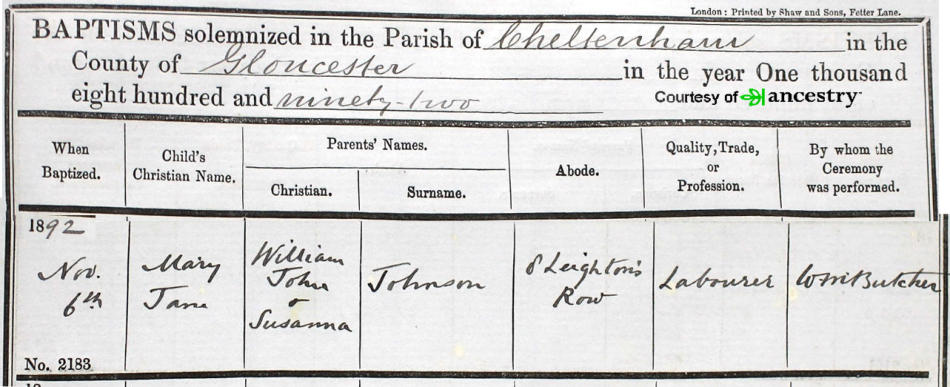 London: Printed by Shaw and Sons, Fetter Lane.
BAPTISMS solemnized in the Parish of Cheltenham in the
County of Gloucester in the year One thousand
eight hundred and ninety-two
Courtesy of ancestry
When Baptized.
Child's Christian Name.
Parents' Names.
Christian.
Surname.
Abode.
Quality, Trade, or Profession.
By whom the Ceremony was performed.
1892
Nov.
6th
No. 2183
Mary
Jane
William
John
&
Susanna
Johnson
8 Leighton's
Row
Labourer
Wm Butcher
18